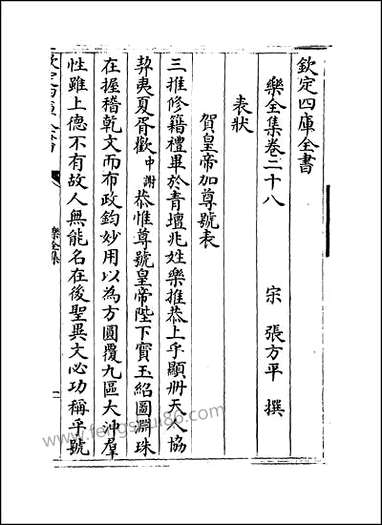 欽定四庫全書
樂全集卷二十八
宋 張方平 撰
表狀
賀皇帝加尊號表
三推修籍禮畢於青壇兆姓樂推恭上乎顯册天人協
契夷夏胥歡中謝恭惟尊號皇帝陛下寳玉紹圖淵珠
在握稽乾文而布政鈞妙用以為方圓覆九區大沖羣
性雖上德不有故人無能名在後聖異文必功稱乎號
樂全集
www.fengshui86.com